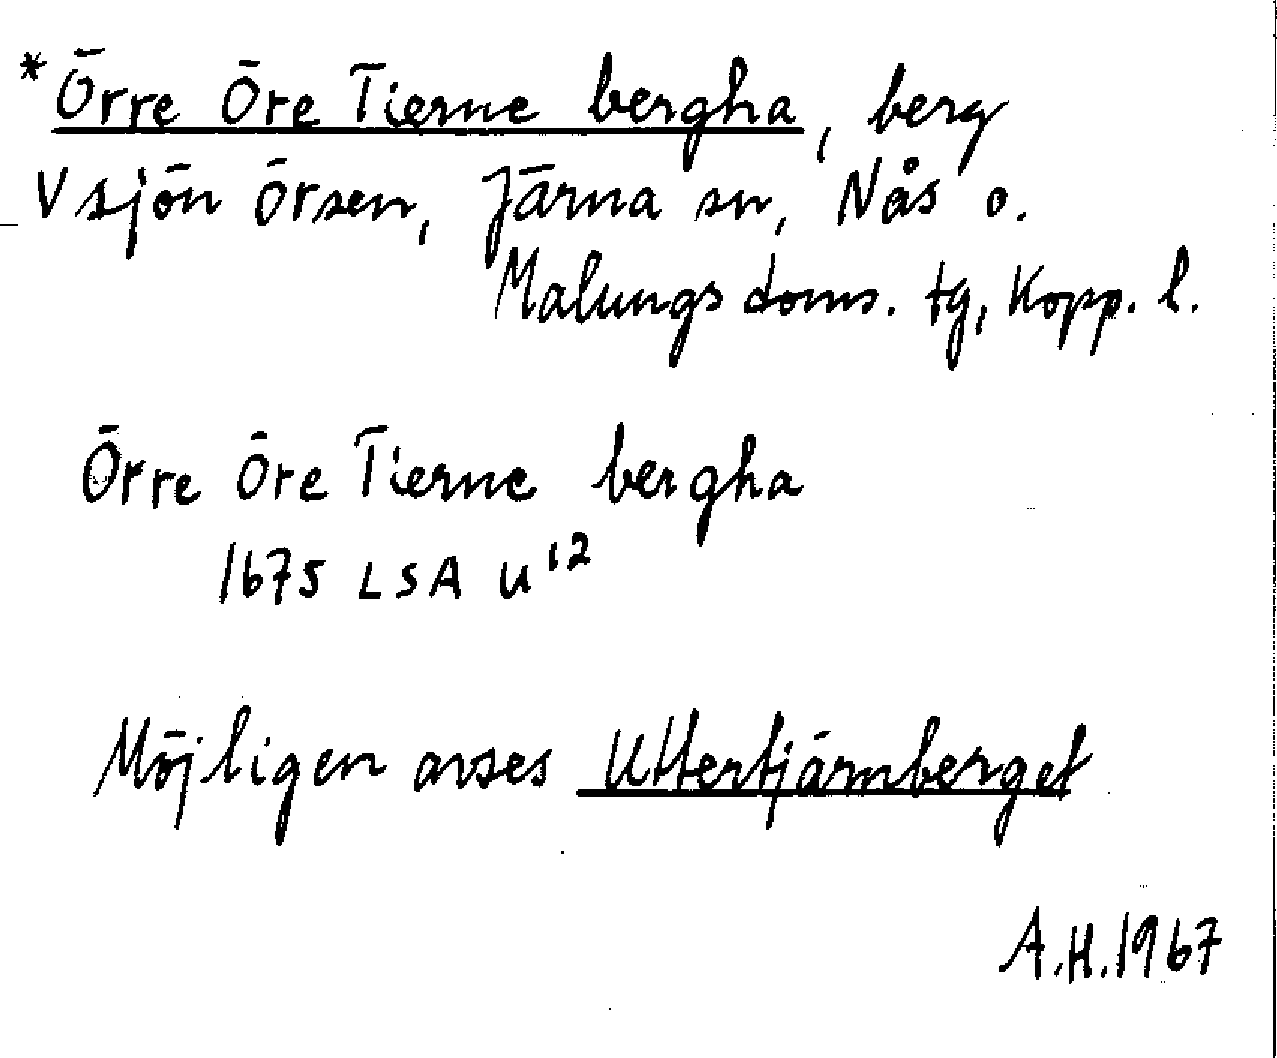 *Örre Öre Tierne bergha, berg
V sjön Örsen, Järna sn, Nås o.
Malungs doms. tg, Kopp. l.
Örre Öre Tierne bergha
1675 LSA U¹²
Möjligen avses Uttertjärnberget
A.H. 1967